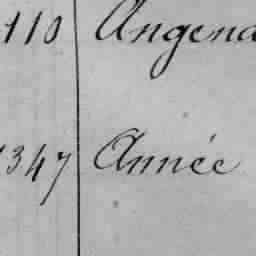 110 Angena
1347 Année